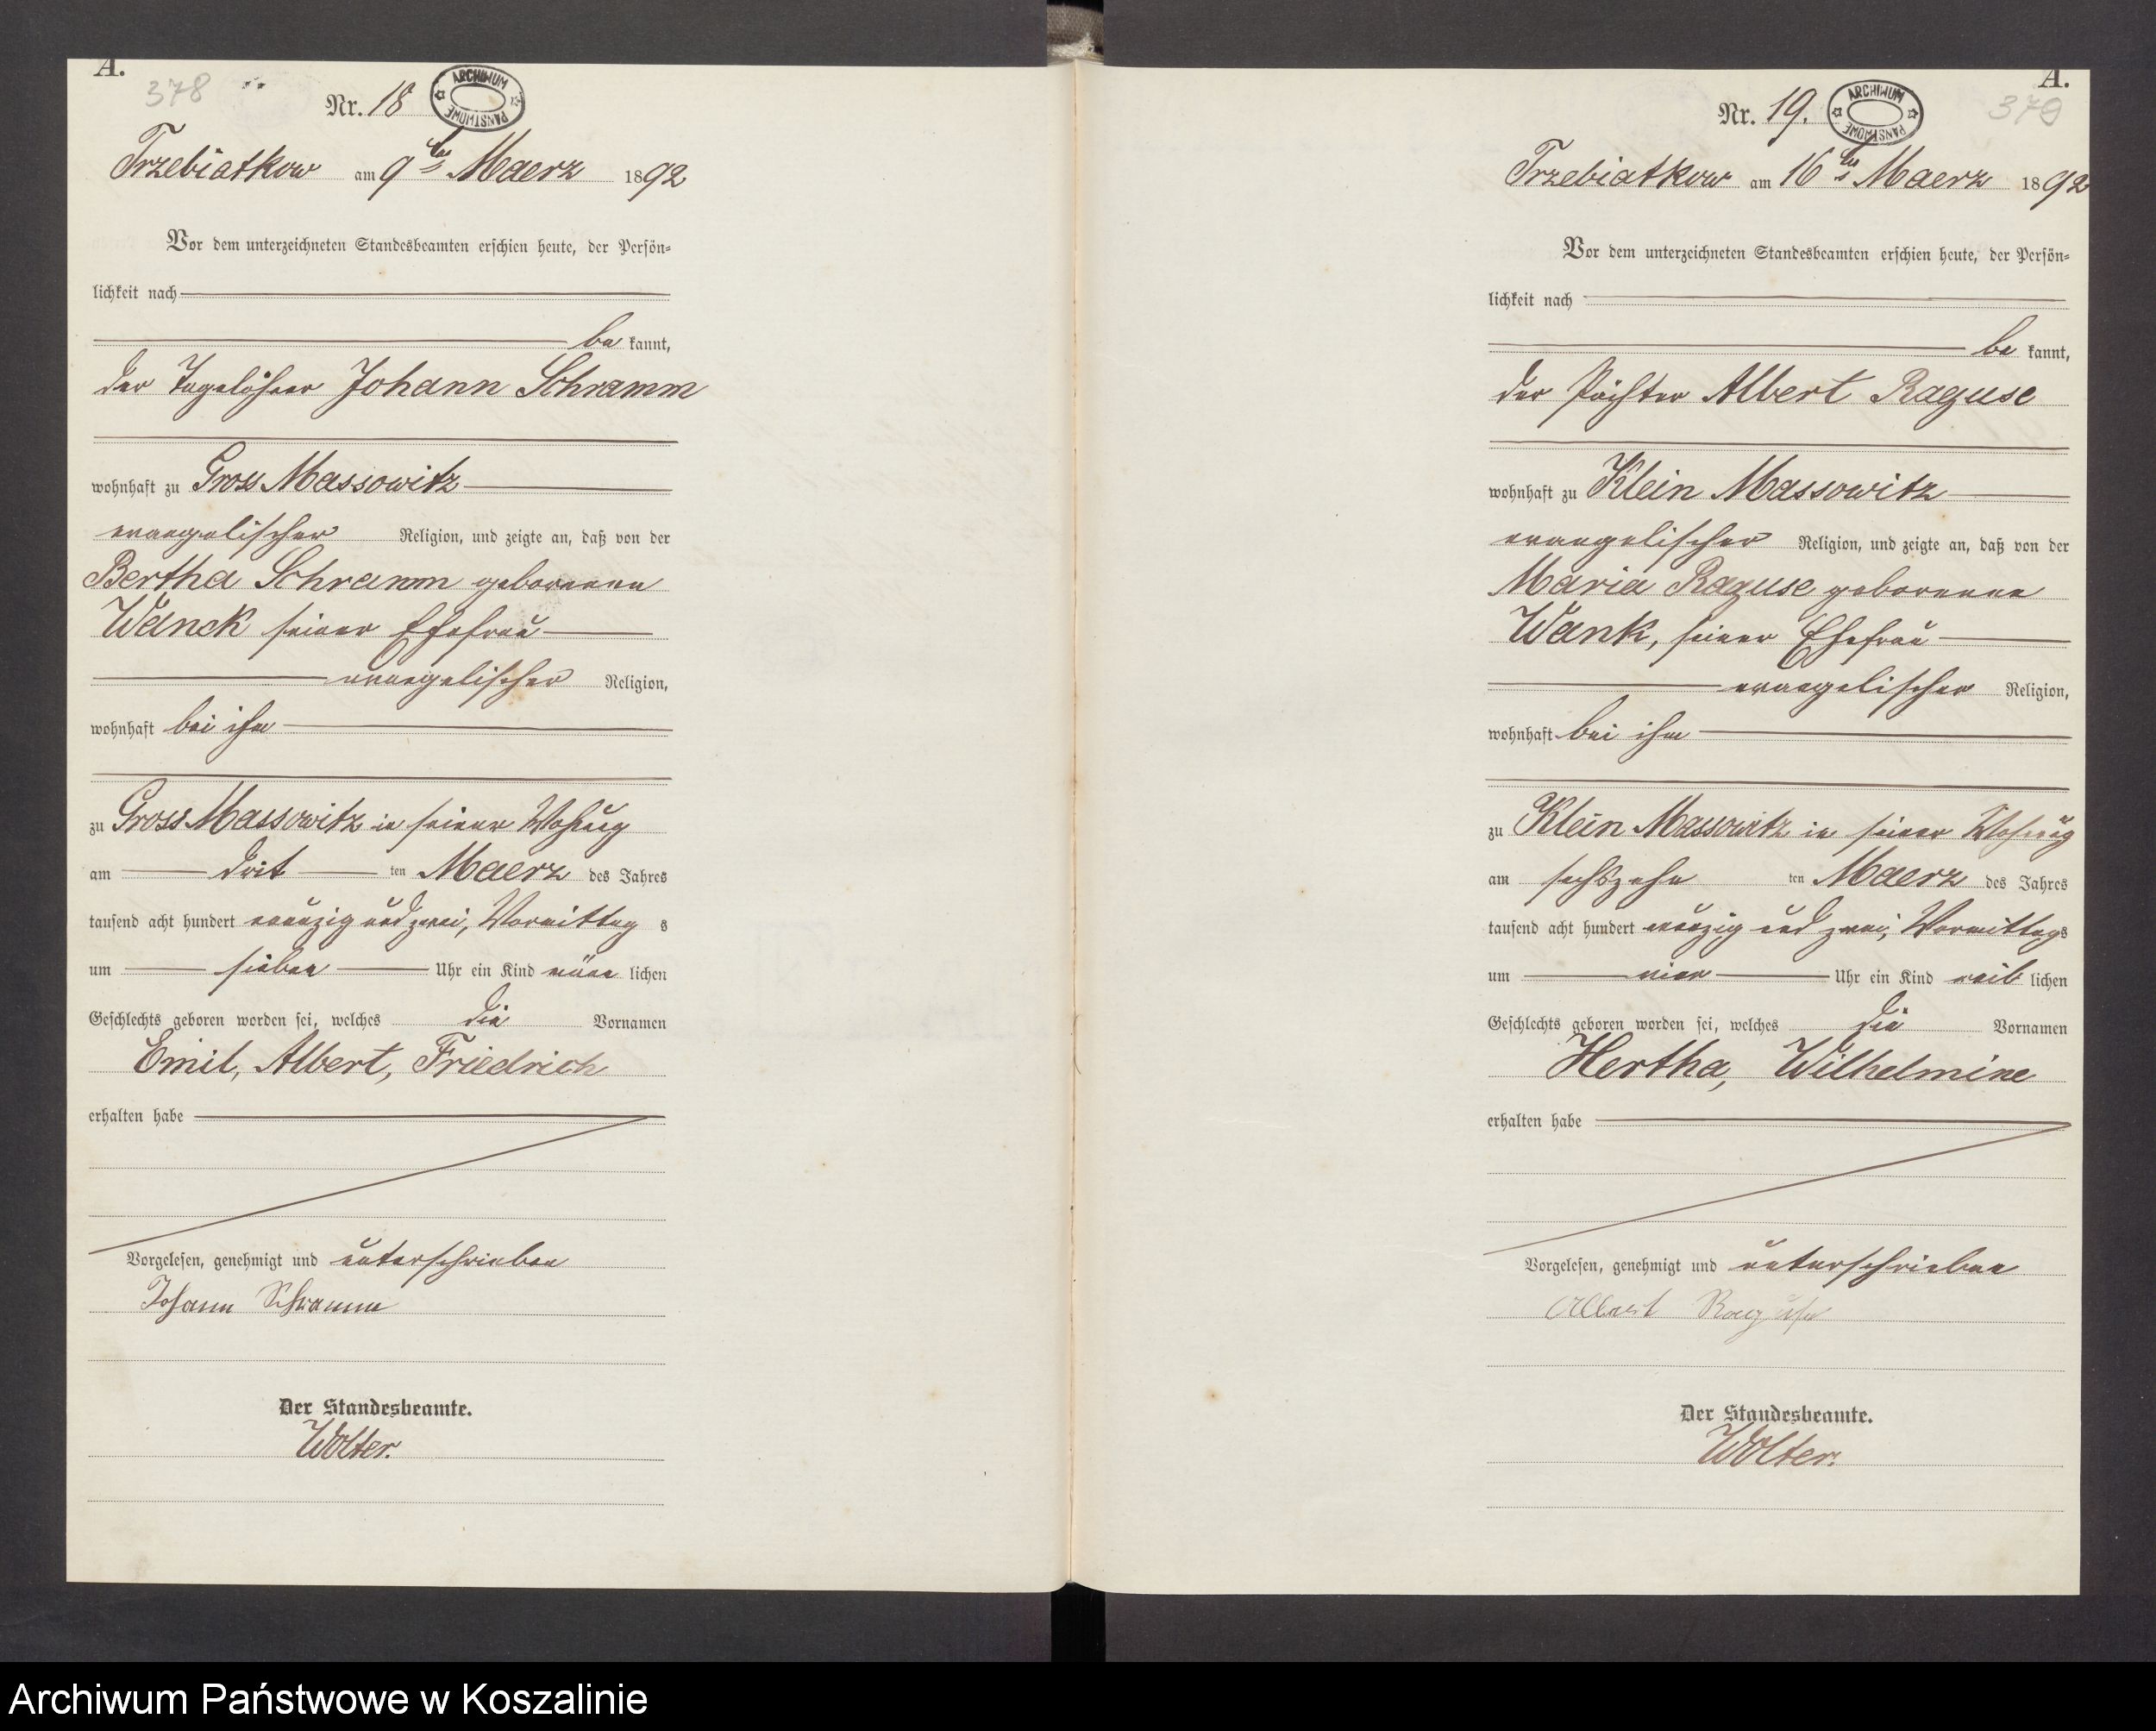 A.
378
Nr. 18
ARCHIWUM PAŃSTWOWE
Trzebiatkow am 9ten Maerz 1892
Vor dem unterzeichneten Standesbeamten erschien heute, der Persön-
lichkeit nach
be kannt,
der Tagelöhner Johann Schramm
wohnhaft zu Gross Massowitz
evangelischer Religion, und zeigte an, daß von der
Bertha Schramm geborenen
Wanck seiner Ehefrau
evangelischer Religion,
wohnhaft bei ihm
zu Gross Massowitz in seiner Wohnung
am drit ten Maerz des Jahres
tausend acht hundert neunzig und zwei, Vormittag s
um sieben Uhr ein Kind männ lichen
Geschlechts geboren worden sei, welches die Vornamen
Emil, Albert, Friedrich
erhalten habe
Vorgelesen, genehmigt und unterschrieben
Johann Schramm
Der Standesbeamte.
Wolter.
A.
379
Nr. 19.
ARCHIWUM PAŃSTWOWE
Trzebiatkow am 16ten Maerz 1892
Vor dem unterzeichneten Standesbeamten erschien heute, der Persön-
lichkeit nach
be kannt,
der Pächter Albert Raguse
wohnhaft zu Klein Massowitz
evangelischer Religion, und zeigte an, daß von der
Maria Raguse geborenen
Wank, seiner Ehefrau
evangelischer Religion,
wohnhaft bei ihm
zu Klein Massowitz in seiner Wohnung
am sechszehn ten Maerz des Jahres
tausend acht hundert neunzig und zwei, Vormittags
um vier Uhr ein Kind weib lichen
Geschlechts geboren worden sei, welches die Vornamen
Hertha, Wilhelmine
erhalten habe
Vorgelesen, genehmigt und unterschrieben
Albert Raguse
Der Standesbeamte.
Wolter.
Archiwum Państwowe w Koszalinie